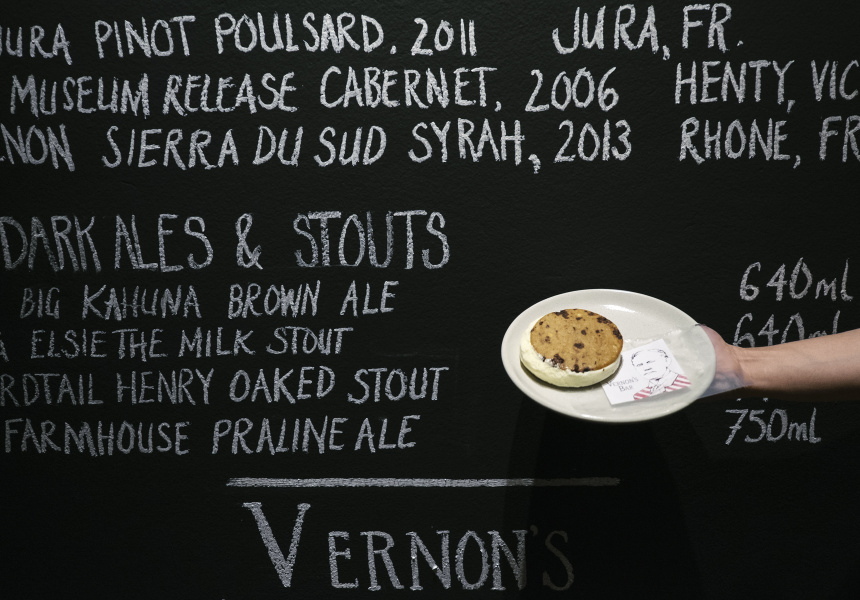 JURA PINOT POULSARD. 2011 JURA, FR.
MUSEUM RELEASE CABERNET, 2006 HENTY, VIC
NON SIERRA DU SUD SYRAH, 2013 RHONE, FR
DARK ALES & STOUTS
BIG KAHUNA BROWN ALE 640ml
ELSIE THE MILK STOUT 640ml
RDTAIL HENRY OAKED STOUT
FARMHOUSE PRALINE ALE 750ml
VERNON'S
BAR
VERNON'S